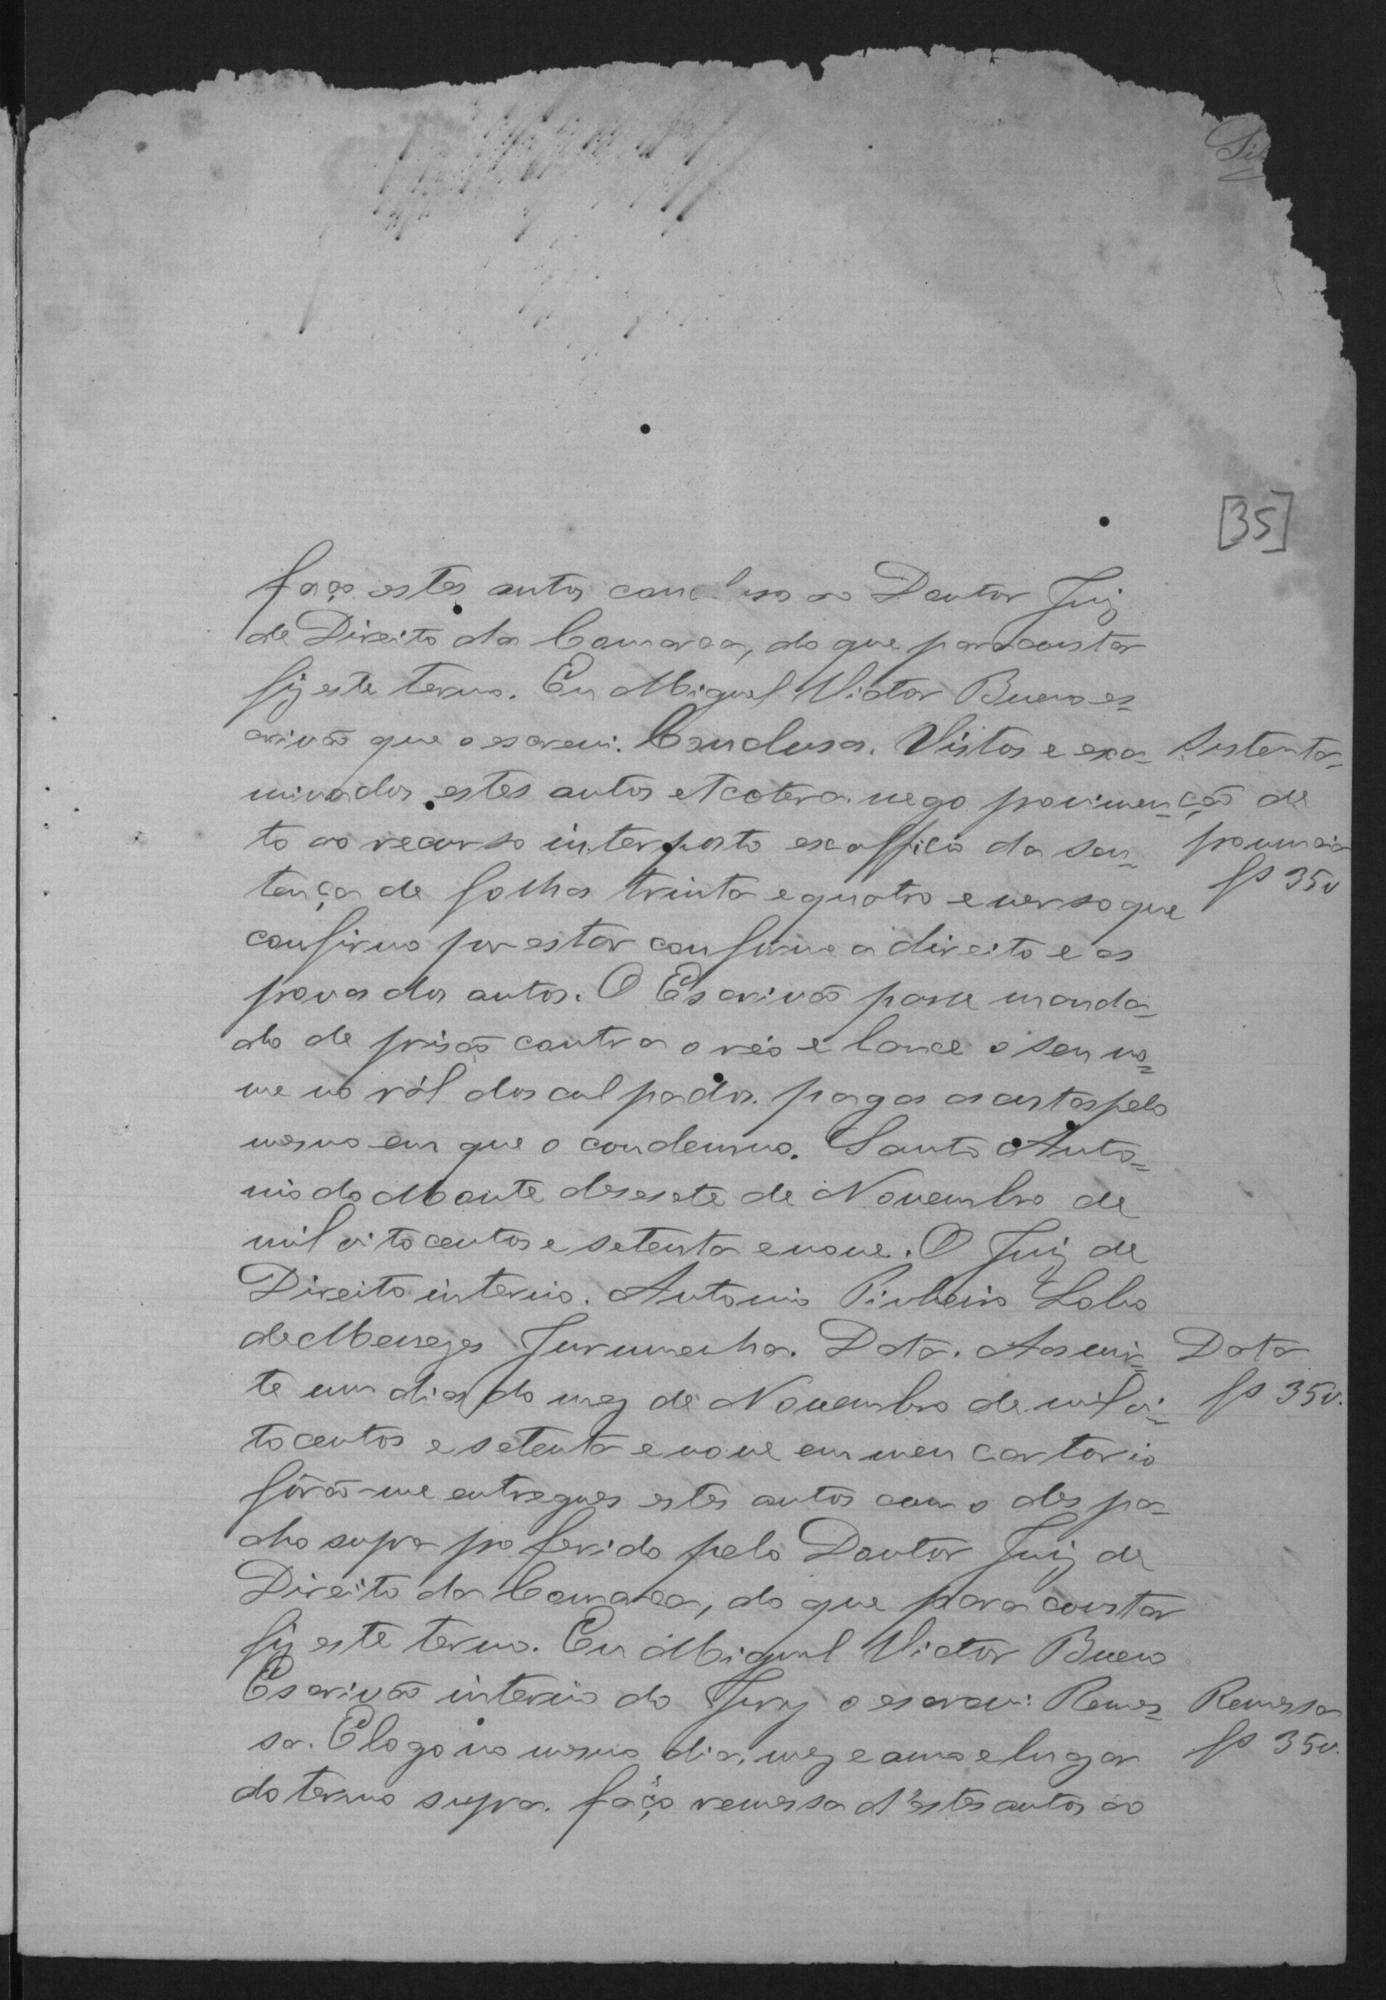 [35]
faço estes autos concluso ao Doutor Juiz
de Direito da Comarca, do que para constar
fiz este termo. Eu Miguel Victor Bueno es=
crivão que o escrevi. Conclusa. Vistos e exa=
Sustenta=
minados estes autos etcetera nego provimen=
ção de
to ao recurso interposto ex officio da sen=
pronuncia
tença de folha trinta e quatro e verso que
fs 35v
confirmo por estar conforme a direito e as
provas dos autos. O Escrivão passe manda=
do de prisão contra o réo e lance o seu no=
me no ról dos culpados. pagas as custas pelo
mesmo em que o condemno. Santo Anto=
nio do Monte desesete de Novembro de
mil oitocentos e setenta e nove. O Juiz de
Direito interino. Antonio Pinheiro Lobo
de Menezes Jurumenha. Data. Aos vin=
Data
te um dias do mez de Novembro de mil oi=
fs 35v.
tocentos e setenta e nove em meu cartorio
fôrão-me entregues estes autos com o despa=
cho supra proferido pelo Doutor Juiz de
Direito da Comarca, do que para constar
fiz este termo. Eu Miguel Victor Bueno
Escrivão interino do Jury o escrevi: Remes=
Remessa
sa. E logo no mesmo dia, mez e anno e lugar
fs 35v.
do termo supra. faço remessa d'estes autos ao